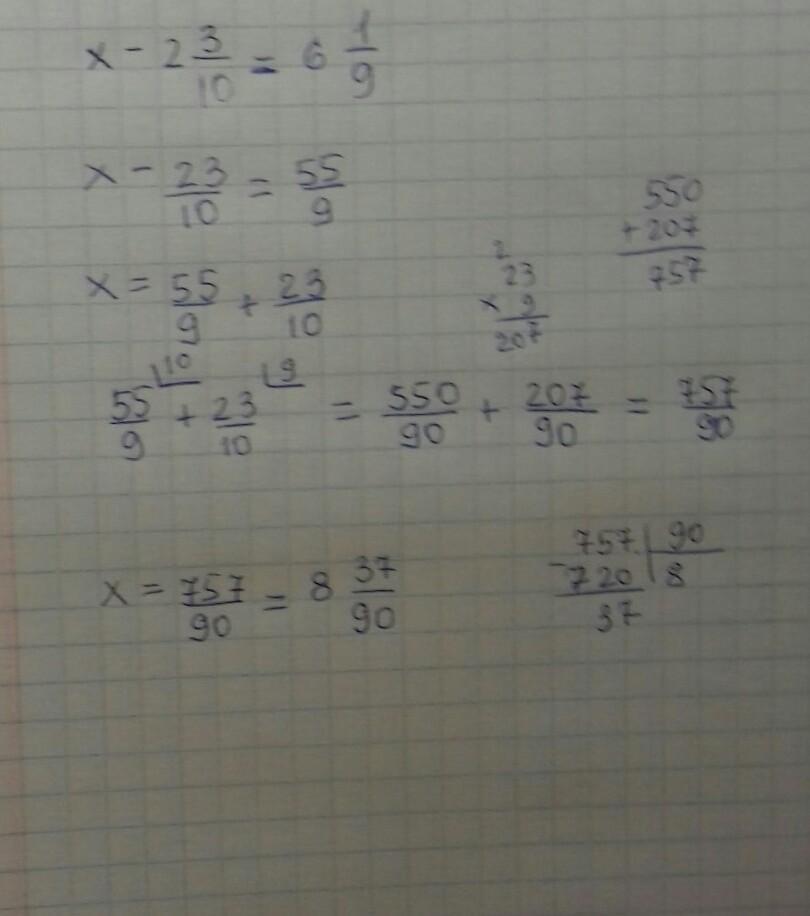 x - 2 3/10 = 6 1/9
x - 23/10 = 55/9
x = 55/9 + 23/10
2
23
× 9
207
550
+ 207
757
55/9 ⌊10 + 23/10 ⌊9 = 550/90 + 207/90 = 757/90
x = 757/90 = 8 37/90
757 | 90
- 720 | 8
37